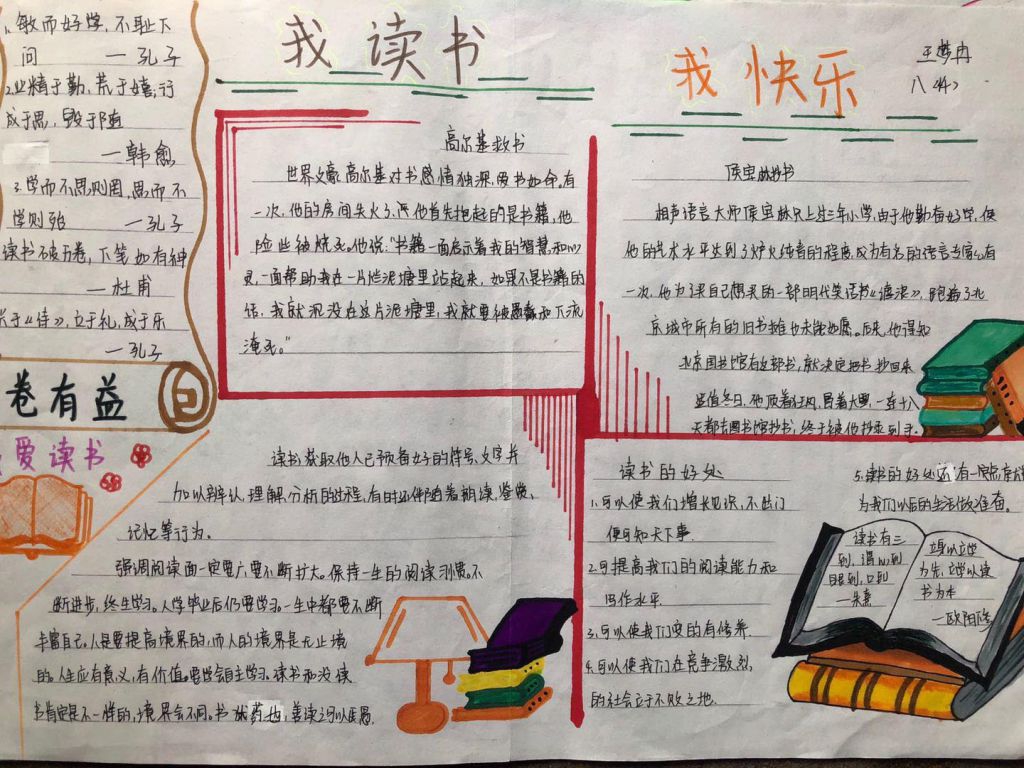 我 读 书
我 快乐
王梦冉
八〈4〉
1、敏而好学，不耻下
问 — 孔子
2、业精于勤，荒于嬉；行
成于思，毁于随
— 韩愈
3、学而不思则罔，思而不
学则殆 — 孔子
读书破万卷，下笔如有神
— 杜甫
于《诗》，立于礼，成于乐
— 孔子
卷有益
爱读书
高尔基救书
世界文豪高尔基对书感情独深，爱书如命。有
一次，他的房间失火了，他首先抱起的是书籍，他
险些被烧死。他说："书籍一面启示着我的智慧和心
灵，一面帮助我在一片烂泥塘里站起来，如果不是书籍的
话，我就沉没在这片泥塘里，我就要被愚蠢和下流
淹死。"
侯宝林抄书
相声语言大师侯宝林只上过三年小学，由于他勤奋好学，使
他的艺术水平达到了炉火纯青的程度，成为有名的语言专家。有
一次，他为了买自己想买的一部明代笑话书《谑浪》，跑遍了北
京城所有的旧书摊也未能如愿。后来，他得知
北京图书馆有这部书，就决定把书抄回来
适值冬日，他顶着狂风，冒着大雪，一连十八
天都去图书馆抄书，终于被他抄录到手。
读书，获取他人已预备好的符号、文字并
加以辨认、理解、分析的过程，有时还伴随着朗读、鉴赏、
记忆等行为。
强调阅读面一定要广，要不断扩大。保持一生的阅读习惯。不
断进步，终生学习。大学毕业后仍要学习。一生中都要不断
丰富自己。人是要提高境界的，而人的境界是无止境
的。人生应有意义，有价值。要学会自主学习。读书和没读
书肯定是不一样的，境界会不同。书犹药也，善读之可以医愚。
读书的好处
1、可以使我们增长见识，不出门
便可知天下事.
2、可提高我们的阅读能力和
写作水平.
3、可以使我们变的有修养.
4、可以使我们在竞争激烈
的社会立于不败之地.
5、读书的好处还有
为我们以后的生活做准备。
读书有三
到，谓心到
眼到，口到
— 朱熹
立身以立学
为先，立学以读
书为本
— 欧阳修